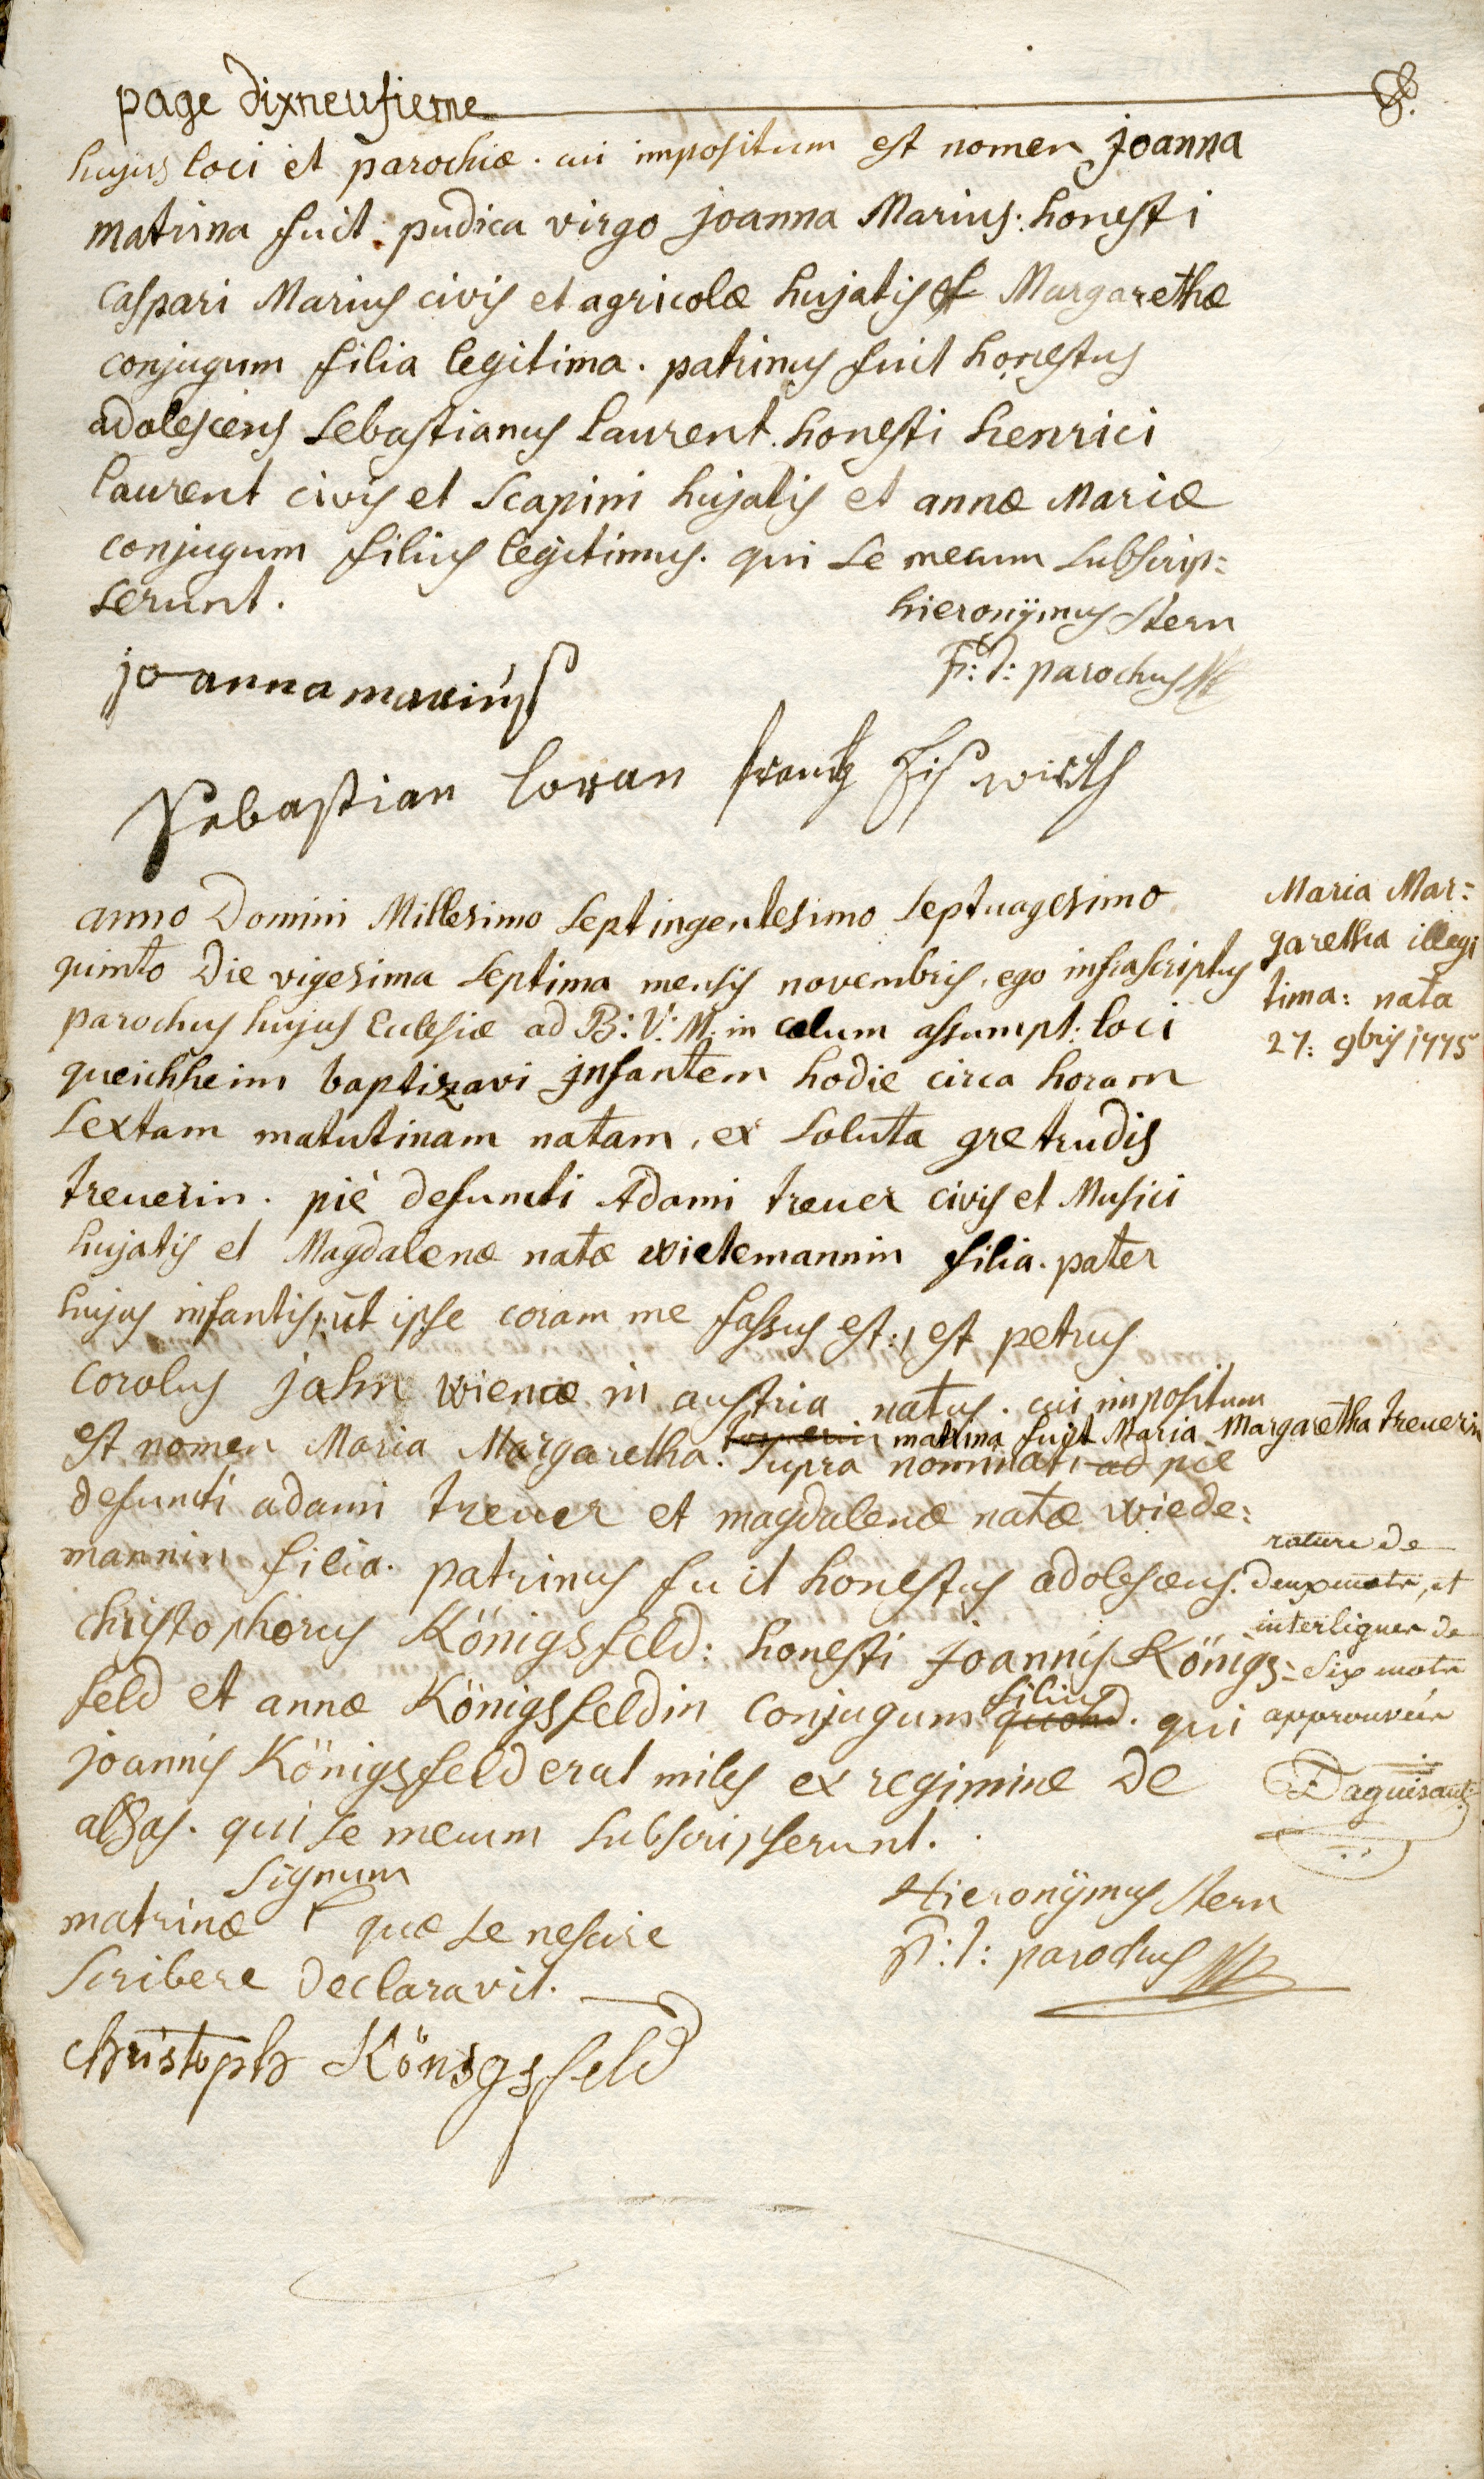 page dixneufieme
hujus loci et parochiæ. cui impositum est nomen joanna
matrina fuit pudica virgo joanna Marius. honesti
caspari Marius civis et agricolæ hujatis et Margarethæ
conjugum filia legitima. patrinus fuit honestus
adolescens Sebastianus laurent. honesti henrici
laurent civis et Scapini hujatis et annæ Mariæ
conjugum filius legitimus. qui se mecum subscrip=
serunt.
hieronÿmus Stern
p: t: parochus
joanna mariuß
Sebastian loran frantz
anno Domini Millesimo Septingentesimo Septuagesimo
quinto Die vigesima Septima mensis novembris, ego infrascriptus
parochus hujus Ecclesiæ ad B: V: M: in cælum assumpt: loci
queichheim baptizavi jnfantem hodie circa horam
Sextam matutinam natam, ex Soluta gretrudis
treuerin. piè defuncti Adami treuer civis et Musici
hujatis et Magdalenæ natæ wietemannin filia. pater
hujus infantis, ut ipse coram me fassus est:, est petrus
corolus jahn wienæ in austria natus. cui impositum
est nomen Maria Margaretha. matrina fuit Maria Margaretha treuerin
Supra nominati ad piè
defuncti adami treuer et magdalenæ natæ wiede=
mannin filia. patrinus fuit honestus adolescens.
christophorus Königsfeld: honesti joannis Königs=
feld et annæ Königsfeldin conjugum filius quond. qui
joannis Königsfeld erat miles ex regimine de
alsas. qui se mecum subscripserunt.
Signum
matrinæ + quæ se nescire
scribere declaravit.
HieronÿmuS Stern
p: t: parochus
christoph Königsfeld
Maria Mar=
garetha illegi
tima: nata
27: 9bris 1775
rature de
deux mots, et
interligner de
Six mots
approuvées
Daguisant